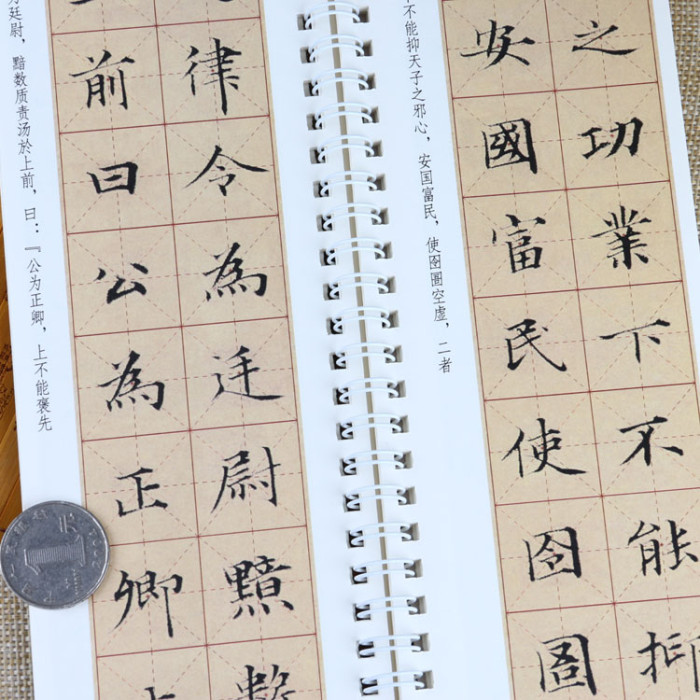 之功業下不能抑
安國富民使囹圄
不能抑天子之邪心，安国富民，使囹圄空虚，二者
律令為廷尉黯數
前曰公為正卿
廷尉，黯数质责汤於上前，曰：『公为正卿，上不能褒先
1